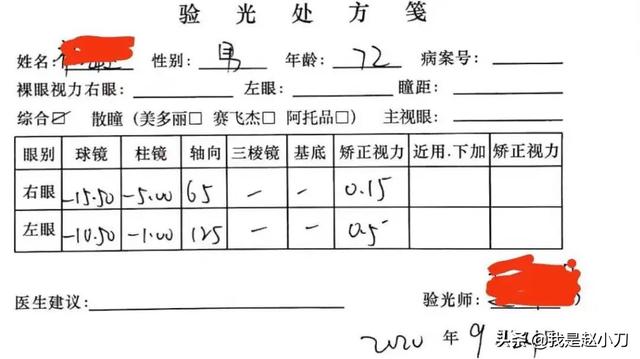 验光处方笺
姓名: 性别: 男 年龄: 72 病案号:
裸眼视力右眼: 左眼: 瞳距:
综合☑ 散瞳（美多丽□ 赛飞杰□ 阿托品□ 主视眼:
眼别 球镜 柱镜 轴向 三棱镜 基底 矫正视力 近用.下加 矫正视力
右眼 -15.50 -5.00 65 — — 0.15
左眼 -10.50 -1.00 125 — — 0.5
医生建议: 验光师:
2020 年 9
头条@我是赵小刀